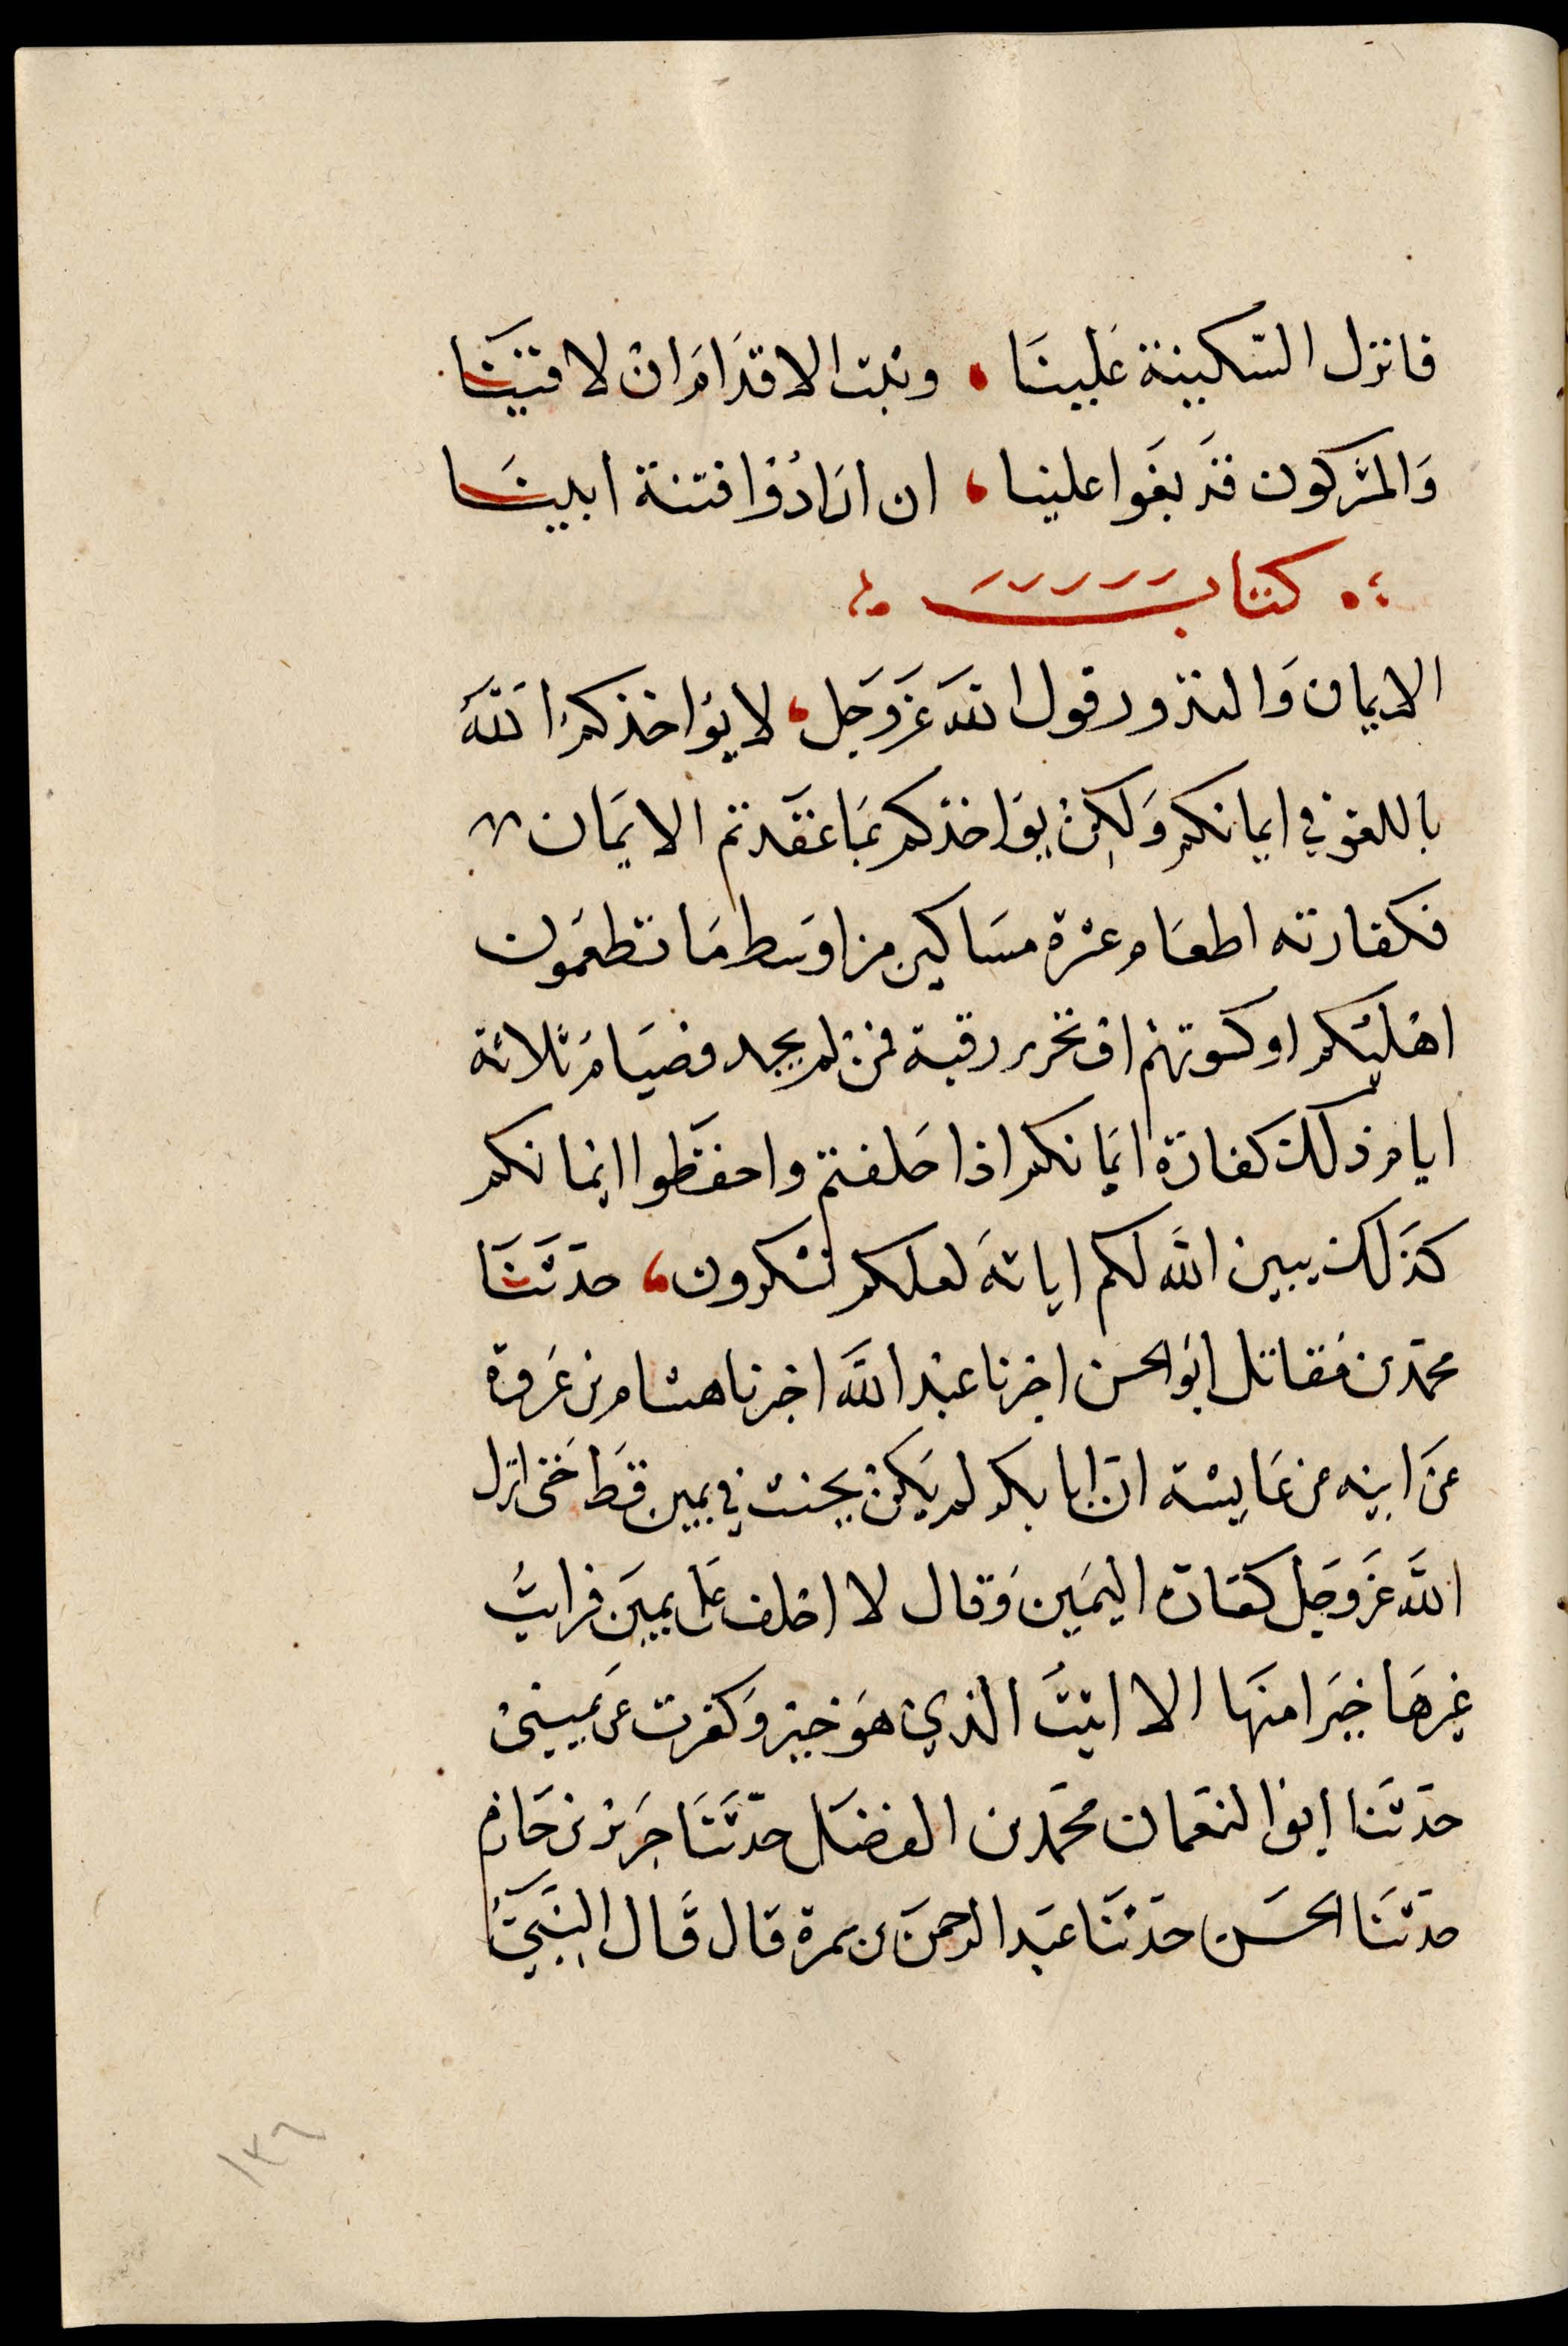 فانزل السّكينة عَلينَا • وثبت الاقدَامَ انْ لاقيَنَا
وَالمشركون قدَ بغَوا علينا، ان ارَادُوْا فتنة ابينَا
كتاب
الايمان وَالنذور قول اللهَ عَزَ وَجَل، لا يؤاخذكمُ اللهَ
باللغوْ في ايمانكم وَلكِنْ يؤَاخذكم بمَا عَقَدتم الايمَان
فكفارته اطعَام عشرة مسَاكين من اوسَط مَا تطعمَون
اهْليَكم او كسَوتهمْ اوْ تحرير رقبة فمنْ لم يجد فصيَامَ ثلاثة
ايام ذلكَ كفارَة ايمَانكم اذا حَلفتمْ واحفظَوا ايمانكم
كذَلكَ يبين الله لكم اياتهَ لعلكم تشكرون، حدَثَنَا
محمّد بن مُقاتل ابوُ الحسن اخبرنا عبْد اللهَ اخبرنا هشام بن عَروة
عَن ابيْه عن عَايشْة انّ ابا بكر لم يَكنْ يحنث في يمين قطَ حَتى انزل
اللهَ عَزَ وَجَل كفارَة اليمَين وَقال لا احْلف عَلى يمينَ فرايتُ
غيرهَا خيَرا منهَا الا اتيْتُ الذيْ هوَ خيْر وَكفرت عَن يَميني
حدَثَنا ابوْ النعمَان محمَد بن الفضَل حدّثَنَا جَريْر بن حَازم
حدَثَنَا الحسَن حدَثنَا عبَد الرحمنَ بن سمرة قال قَال النبَيّ
١٣٦